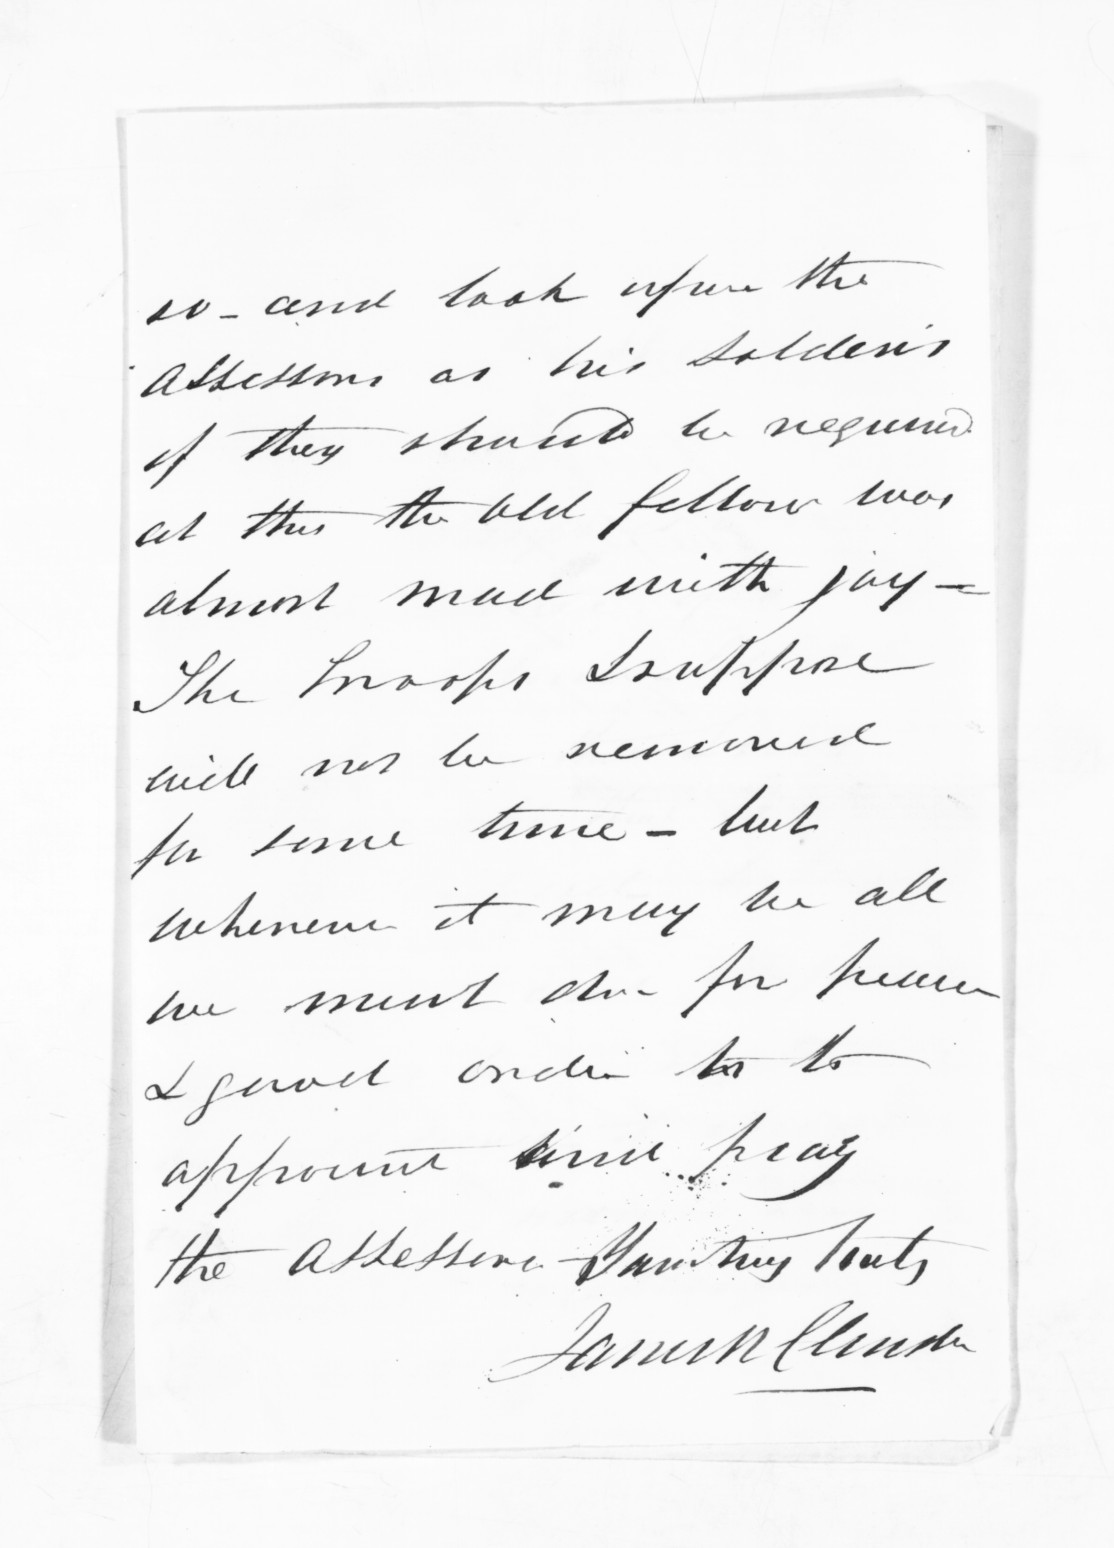 so - and look upon the
Assessors as his Soldiers
if they should be required
at this the Old fellow was
almost mad with joy -
The Troops I suppose
will not be removed
for some time - but
whenever it may be all
we must do - for peace
& good order is to
appoint and pay
the Assessors - Yours very truly
James R Clendon